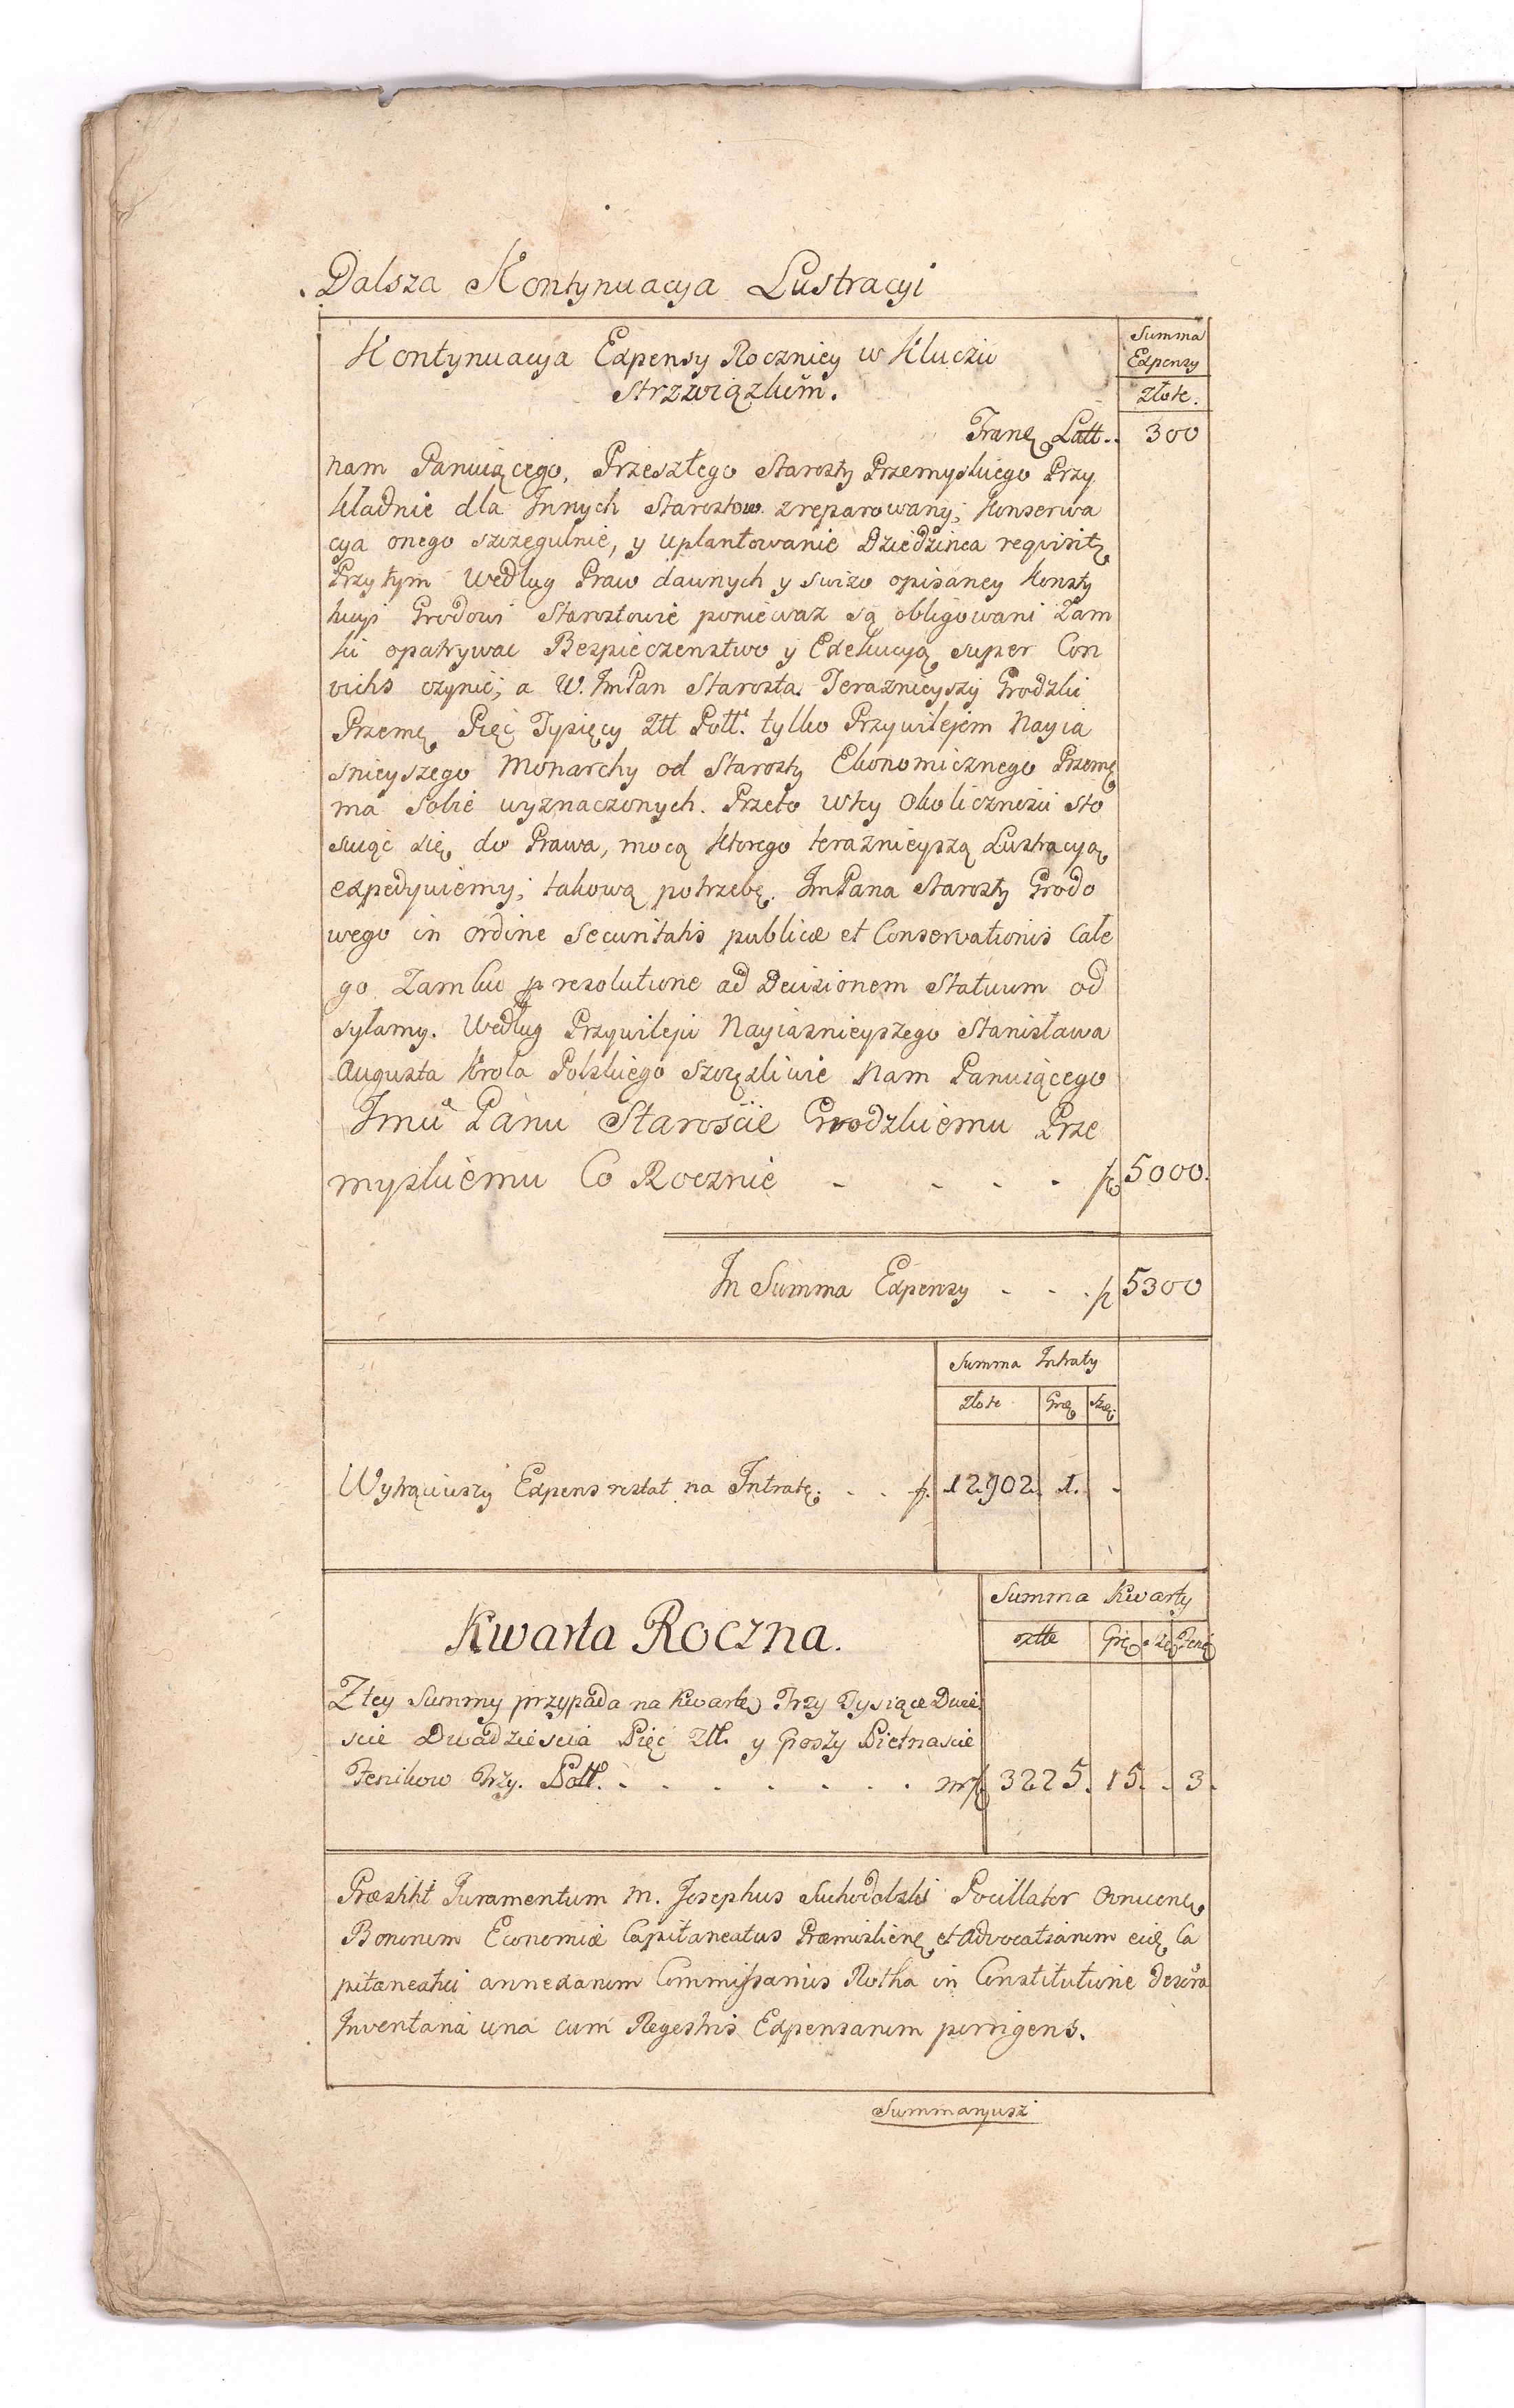 Dalsza Kontynuacya Lustracyi
Kontynuacya Expensy Roczniey w Kluczu
Strzwiązkim.
Summa
Expensy
Złote.
Tranę Latt.. 300
nam Panuiącego, Przeszłego Starosty Przemyskiego Przy
kładnie dla Innych Starostow zreparowany; konserwa
cya onego szczegulnie, y uplantowanie Dziedzinca requiritę
Przytym według Praw dawnych y swizo opisaney konsty
tucyi Grodowi Starostowie poniewaz są obligowani Zam
ki opatrywac Bezpieczenstwo y Exekucyą super Con
victis czynić; a W. ImPan Starosta Teraznieyszy Grodzki
Przemę Pięć Tysięcy Ztt Poll. tylko Przywilejem Nayia
snieyszego Monarchy od Starosty Ekonomicznego Przemę
ma sobie wyznaczonych. Przeto wtey Okolicznosci sto
suiąc się do Prawa, mocą ktorego teraznieyszą Lustracyą
expedyuiemy; takową potrzebę ImPana Starosty Grodo
wego in ordine Securitatis publicæ et Conservationis całe
go Zamku p resolutione ad Decisionem Statuum od
syłamy. Według Przywileju Nayiasnieyszego Stanisława
Augusta Krola Polskiego szczęsliwie Nam Panuiącego
Imu Panu Staroście Grodzkiemu Prze
myskiemu Co Rocznie - - - - f 5000.
In Summa Expensy - - . f 5300
Summa Intraty
Złote Grę Szę.
Wytrąciwszy Expens restat na Intratę. . . f. 12902. 1. -
Summa Kwarty
Kwarta Roczna.
ztte Grę Szę Fenę
Z tey Summy przypada na kwartę Trzy Tysiące Dwie
scie Dwadziescia Pięć Ztt. y Groszy Pietnascie
Fenikow trzy. Poll. . . . . . . . f 3225. 15. . 3.
Præstitit Iuramentum M. Josephus Suchodolski Pocillator Ovrucenę
Bonorum Economiæ Capitaneatus Præmislienę et advocatiarum eidę Ca
pitaneatui annexarum Commissarius Rotha in Constitutione descra
Inventaria una cum Regestris Expensarum porrigens.
Summaryusz